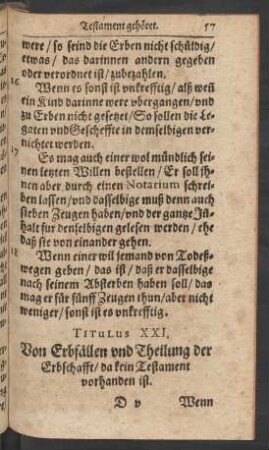 Testament gehöret. 57
were / so seind die Erben nicht schüldig /
etwas / das darinnen andern gegeben
oder verordnet ist / zubezahlen.
Wenn es sonst ist vnkrefftig / alß weñ
ein Kind darinne were vbergangen / vnd
zu Erben nicht gesetzet / So sollen die Le-
gaten vnd Gescheffte in demselbigen ver-
nichtet werden.
Es mag auch einer wol mündlich sei-
nen letzten Willen bestellen / Er soll ih-
nen aber durch einen Notarium schrei-
ben lassen / vnd dasselbige muß denn auch
sieben Zeugen haben / vnd der gantze In-
halt fur denselbigen gelesen werden / ehe
daß sie von einander gehen.
Wenn einer wil jemand von Todeß-
wegen geben / das ist / daß er dasselbige
nach seinem Absterben haben soll / das
mag er für fünff Zeugen thun / aber nicht
weniger / sonst ist es vnkrefftig.
TITULUS XXI.
Von Erbfällen vnd Theilung der
Erbschafft / da kein Testament
vorhanden ist.
D v Wenn